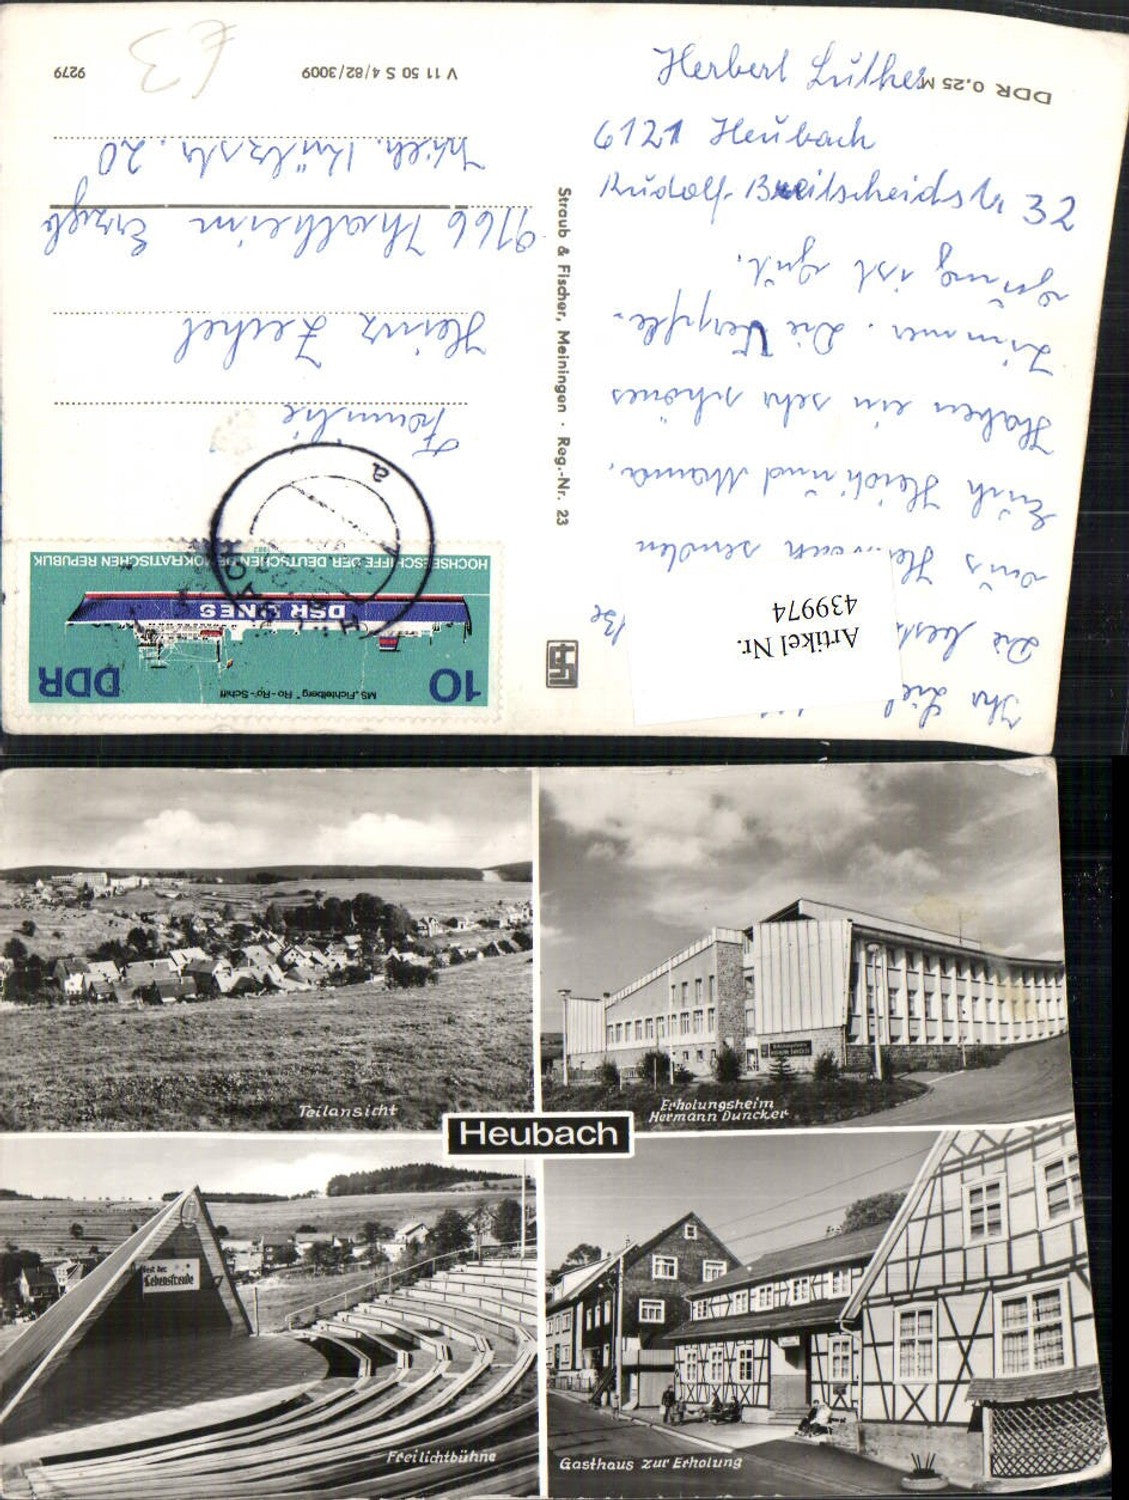 Herbert Luther
6121 Heubach
Rudolf-Breitscheidstr 32
Die
aus senden
Euch Heidi und Mama.
Haben ein sehr schönes
Zimmer. Die Verpfle-
gung ist gut.
Familie
Heinz Zeikel
9166 Thalheim Erzgb
20
DDR 0,25 M
V 11 50 S 4/82/3009
9279
£3
Straub & Fischer, Meiningen · Reg.-Nr. 23
Artikel Nr.
439974
10
MS „Fichtelberg" Ro-Ro-Schiff
DDR
DSR LINES
HOCHSEESCHIFFE DER DEUTSCHEN DEMOKRATISCHEN REPUBLIK
1982
a
Teilansicht
Erholungsheim
Hermann Duncker
Heubach
Lebensfreude
Freilichtbühne
Gasthaus zur Erholung